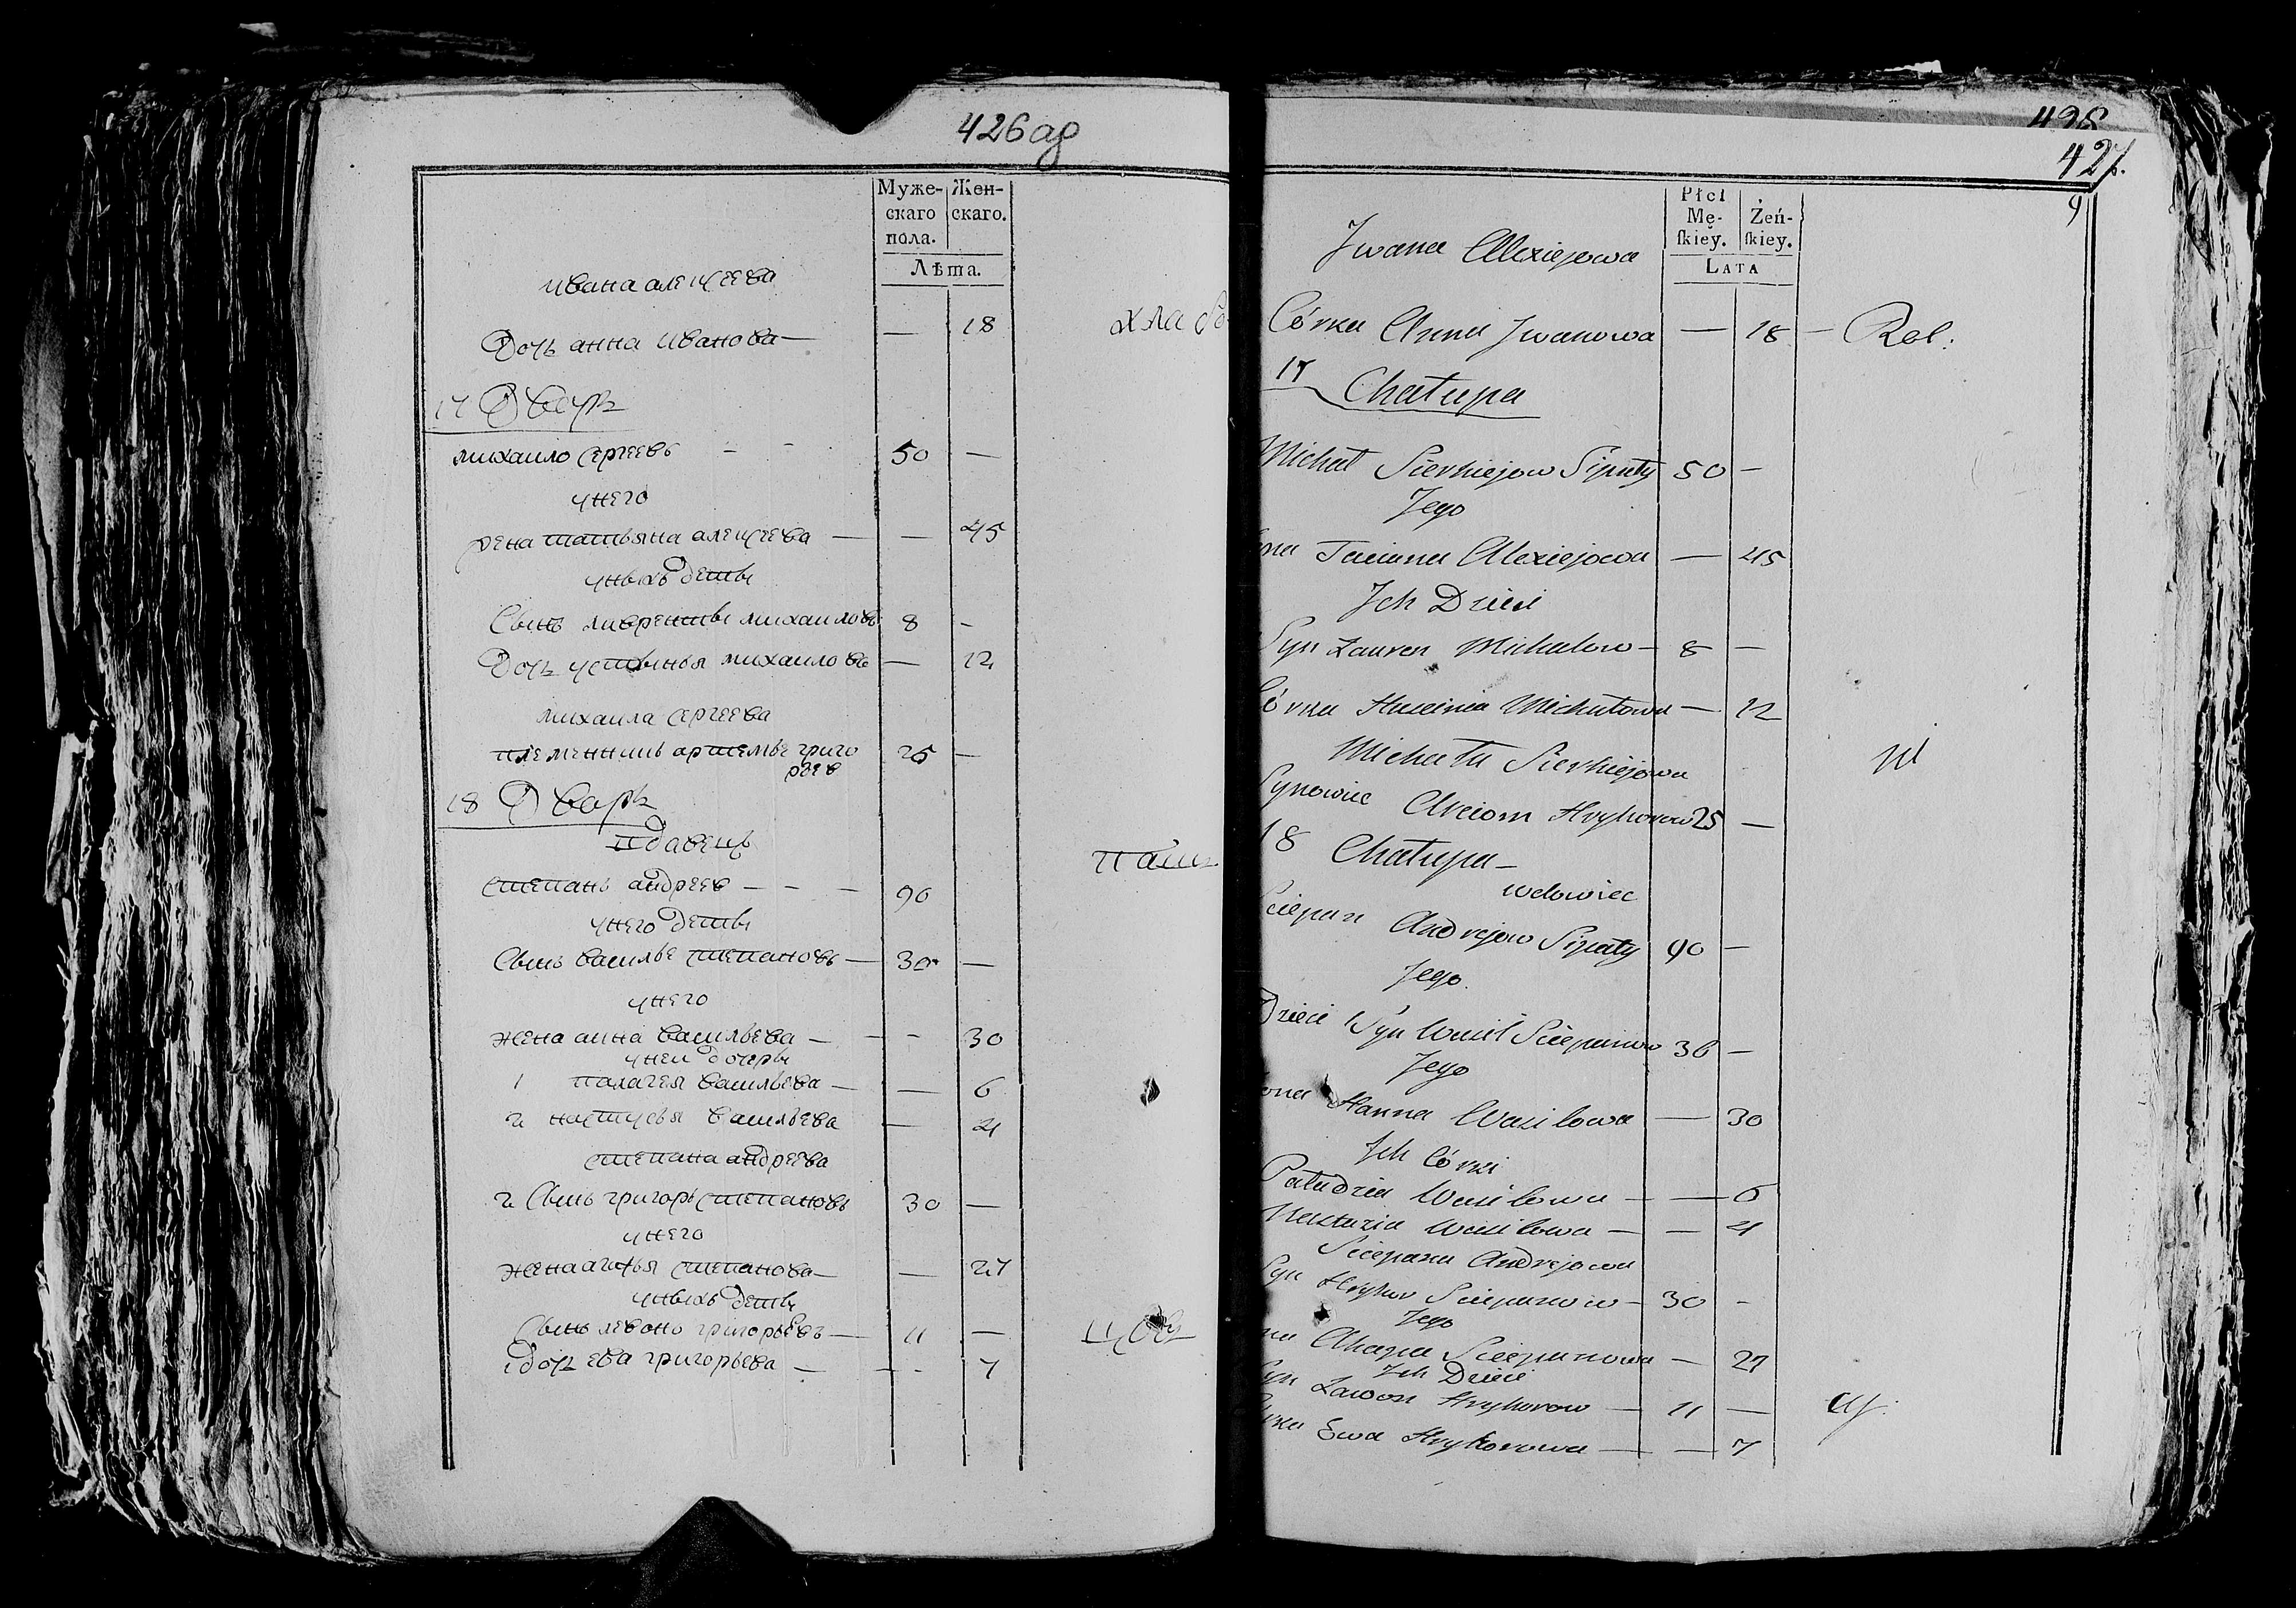 426 аб
Муже-
скаго
пола.
Жен-
скаго.
Лѣта.
ивана алеѯеева
Дочь анна иванова — — 18
17 Дворъ
михаило сергеевъ - - 50 —
унего
жена татьяна алеѯеева — — 45
унихъ дети
Сынъ лаврентеи михаиловъ 8 -
Дочь устинья михаилова — 12
михаила сергеева
племянникъ артемъе григо 25 —
рьев
18 Дворъ
вдовецъ
степанъ андреев - - - 90
унего дети
Сынъ василье степановъ — 30 —
унего
жена анна васильева — - - 30
унеи дочери
1 палагея васильева — — 6
2 настусья васильева — 4
степана андреева
2 Сынъ григоръ степановъ 30 —
унего
жена агафья степанова — — 27
унихъ дети
Сынъ левонъ григорьевъ — 11 —
дочь ева григорьева — - - 7
426
427.
9
Płci
Mę-
skiey.
Żeń-
skiey.
LATA
Jwana Alexiejowa
Córka Anna Jwanowa — 18 — Rol:
17 Chałupa
Michał Sierhiejow Sipaty 50 —
Jego
Taciana Alexiejowa — 45
Jch Dzieci
Syn Ławren Michałow — 8 —
Córka Huscinia Michałowa — 12
Michała Sierhiejowa
Synowiec Arciom Hryhorow 25 —
18 Chałupa —
wdowiec
Sciepan Andrejow Sipaty 90 —
Jego
Dzieci Syn Wasil Sciepanow 30 —
Jego
żona Hanna Wasilowa — 30
Jch Córki
Wasilowa — — 6
Nastazia Wasilowa — — 4
Sciepana Andrejowa
Syn Hryhor Sciepanow — 30 -
Jego
Ahapa Sciepanowa — 27
Jch Dzieci
Syn Lawon Hryhorow — 11 —
Córka Ewa Hryhorowa — — 7